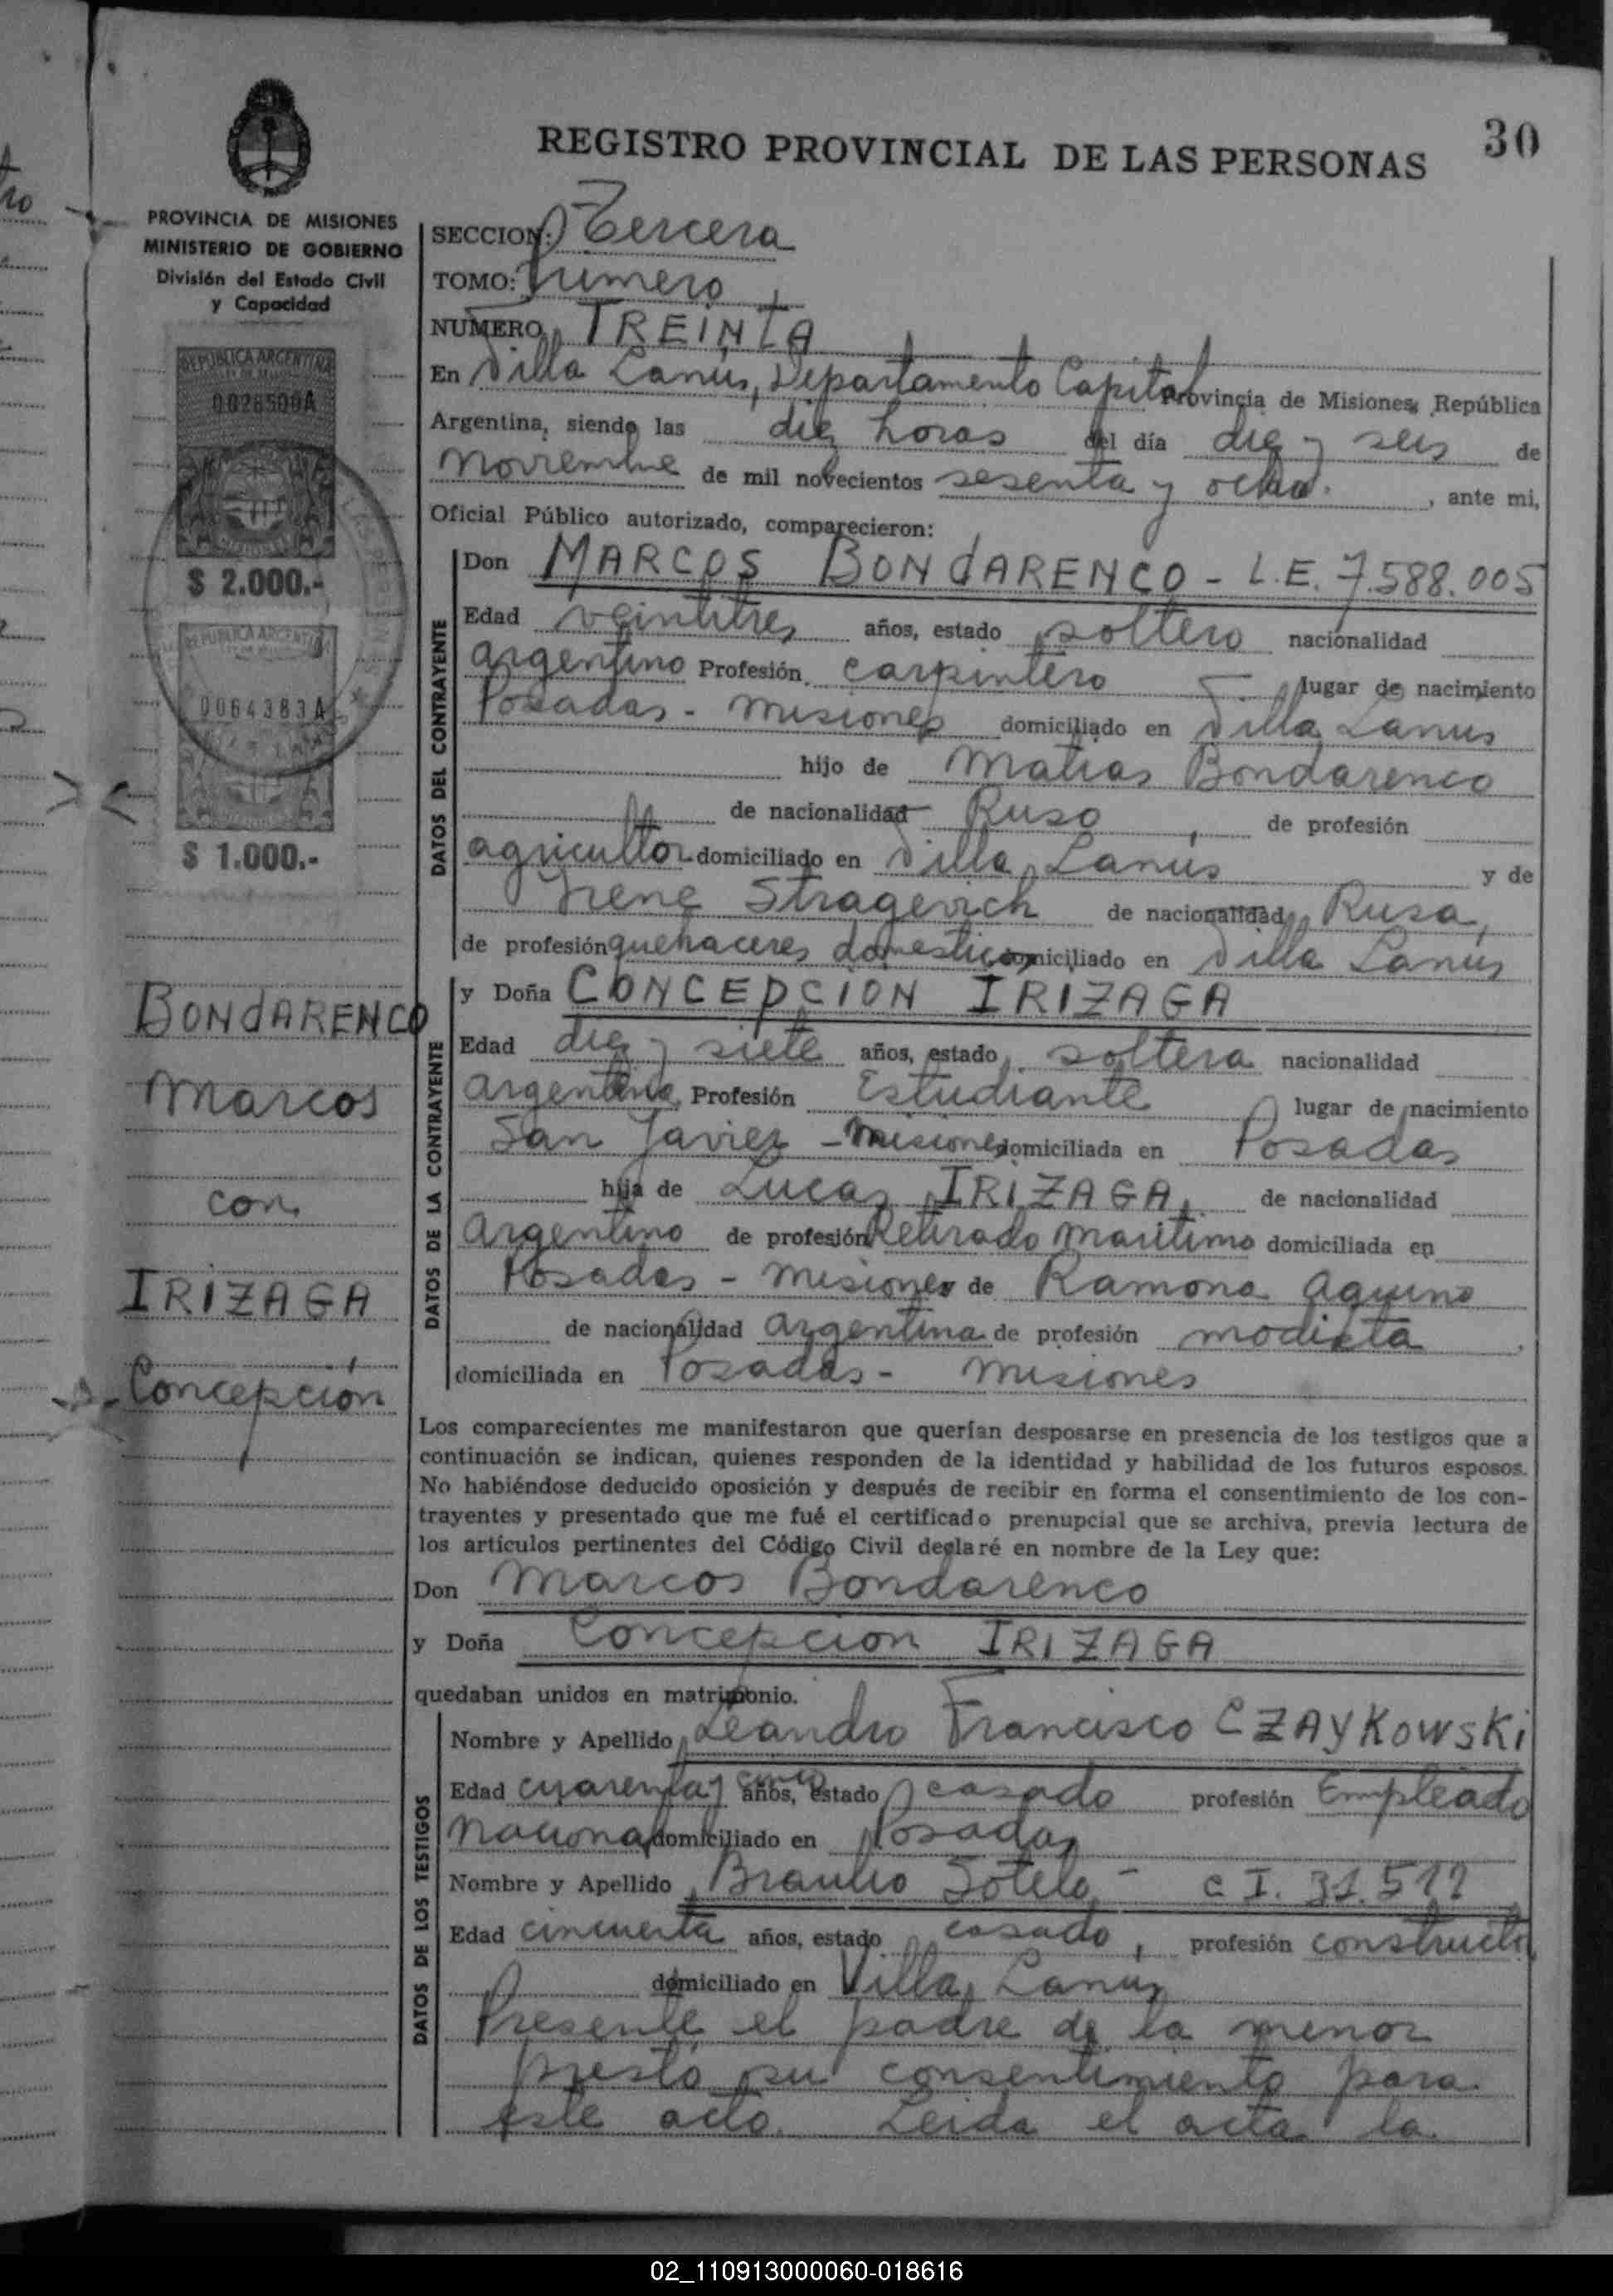 30
REGISTRO PROVINCIAL DE LAS PERSONAS
PROVINCIA DE MISIONES
MINISTERIO DE GOBIERNO
División del Estado Civil
y Capacidad
REPUBLICA ARGENTINA
0028500A
MISIONES
$ 2.000.-
REPUBLICA ARGENTINA
0064383A
$ 1.000.-
BONDARENCO
Marcos
con
IRIZAGA
Concepción
SECCION: Tercera
TOMO: Primero
NUMERO TREINTA
En Villa Lanús, Departamento Capital Provincia de Misiones, República
Argentina, siendo las diez horas del día diez y seis de
Noviembre de mil novecientos sesenta y ocho. , ante mi,
Oficial Público autorizado, comparecieron:
DATOS DEL CONTRAYENTE
Don MARCOS BONDARENCO - L.E. 7.588.005
Edad veintitres años, estado soltero nacionalidad
argentino Profesión carpintero lugar de nacimiento
Posadas - Misiones domiciliado en Villa Lanus
hijo de Matias Bondarenco
de nacionalidad Ruso, de profesión
agricultor domiciliado en Villa Lanús y de
Irene Stragevich de nacionalidad Rusa,
de profesión quehaceres domesticos domiciliado en Villa Lanús
DATOS DE LA CONTRAYENTE
y Doña CONCEPCION IRIZAGA
Edad diez y siete años, estado soltera nacionalidad
argentina Profesión Estudiante lugar de nacimiento
San Javier - Misiones domiciliada en Posadas
hija de Lucas IRIZAGA, de nacionalidad
Argentino de profesión Retirado Maritimo domiciliada en
Posadas - Misiones de Ramona Aquino
de nacionalidad argentina de profesión modista
domiciliada en Posadas - Misiones
Los comparecientes me manifestaron que querían desposarse en presencia de los testigos que a
continuación se indican, quienes responden de la identidad y habilidad de los futuros esposos.
No habiéndose deducido oposición y después de recibir en forma el consentimiento de los con-
trayentes y presentado que me fué el certificado prenupcial que se archiva, previa lectura de
los artículos pertinentes del Código Civil declaré en nombre de la Ley que:
Don Marcos Bondarenco
y Doña Concepcion IRIZAGA
quedaban unidos en matrimonio.
DATOS DE LOS TESTIGOS
Nombre y Apellido Leandro Francisco CZAYKOWSKI
Edad cuarenta y cinco años, estado casado profesión Empleado
Nacional domiciliado en Posadas
Nombre y Apellido Braulio Sotelo - C I. 31.512
Edad cincuenta años, estado casado, profesión constructor
domiciliado en Villa Lanús
Presente el padre de la menor
prestó su consentimiento para
este acto. Leida el acta la
02_110913000060-018616